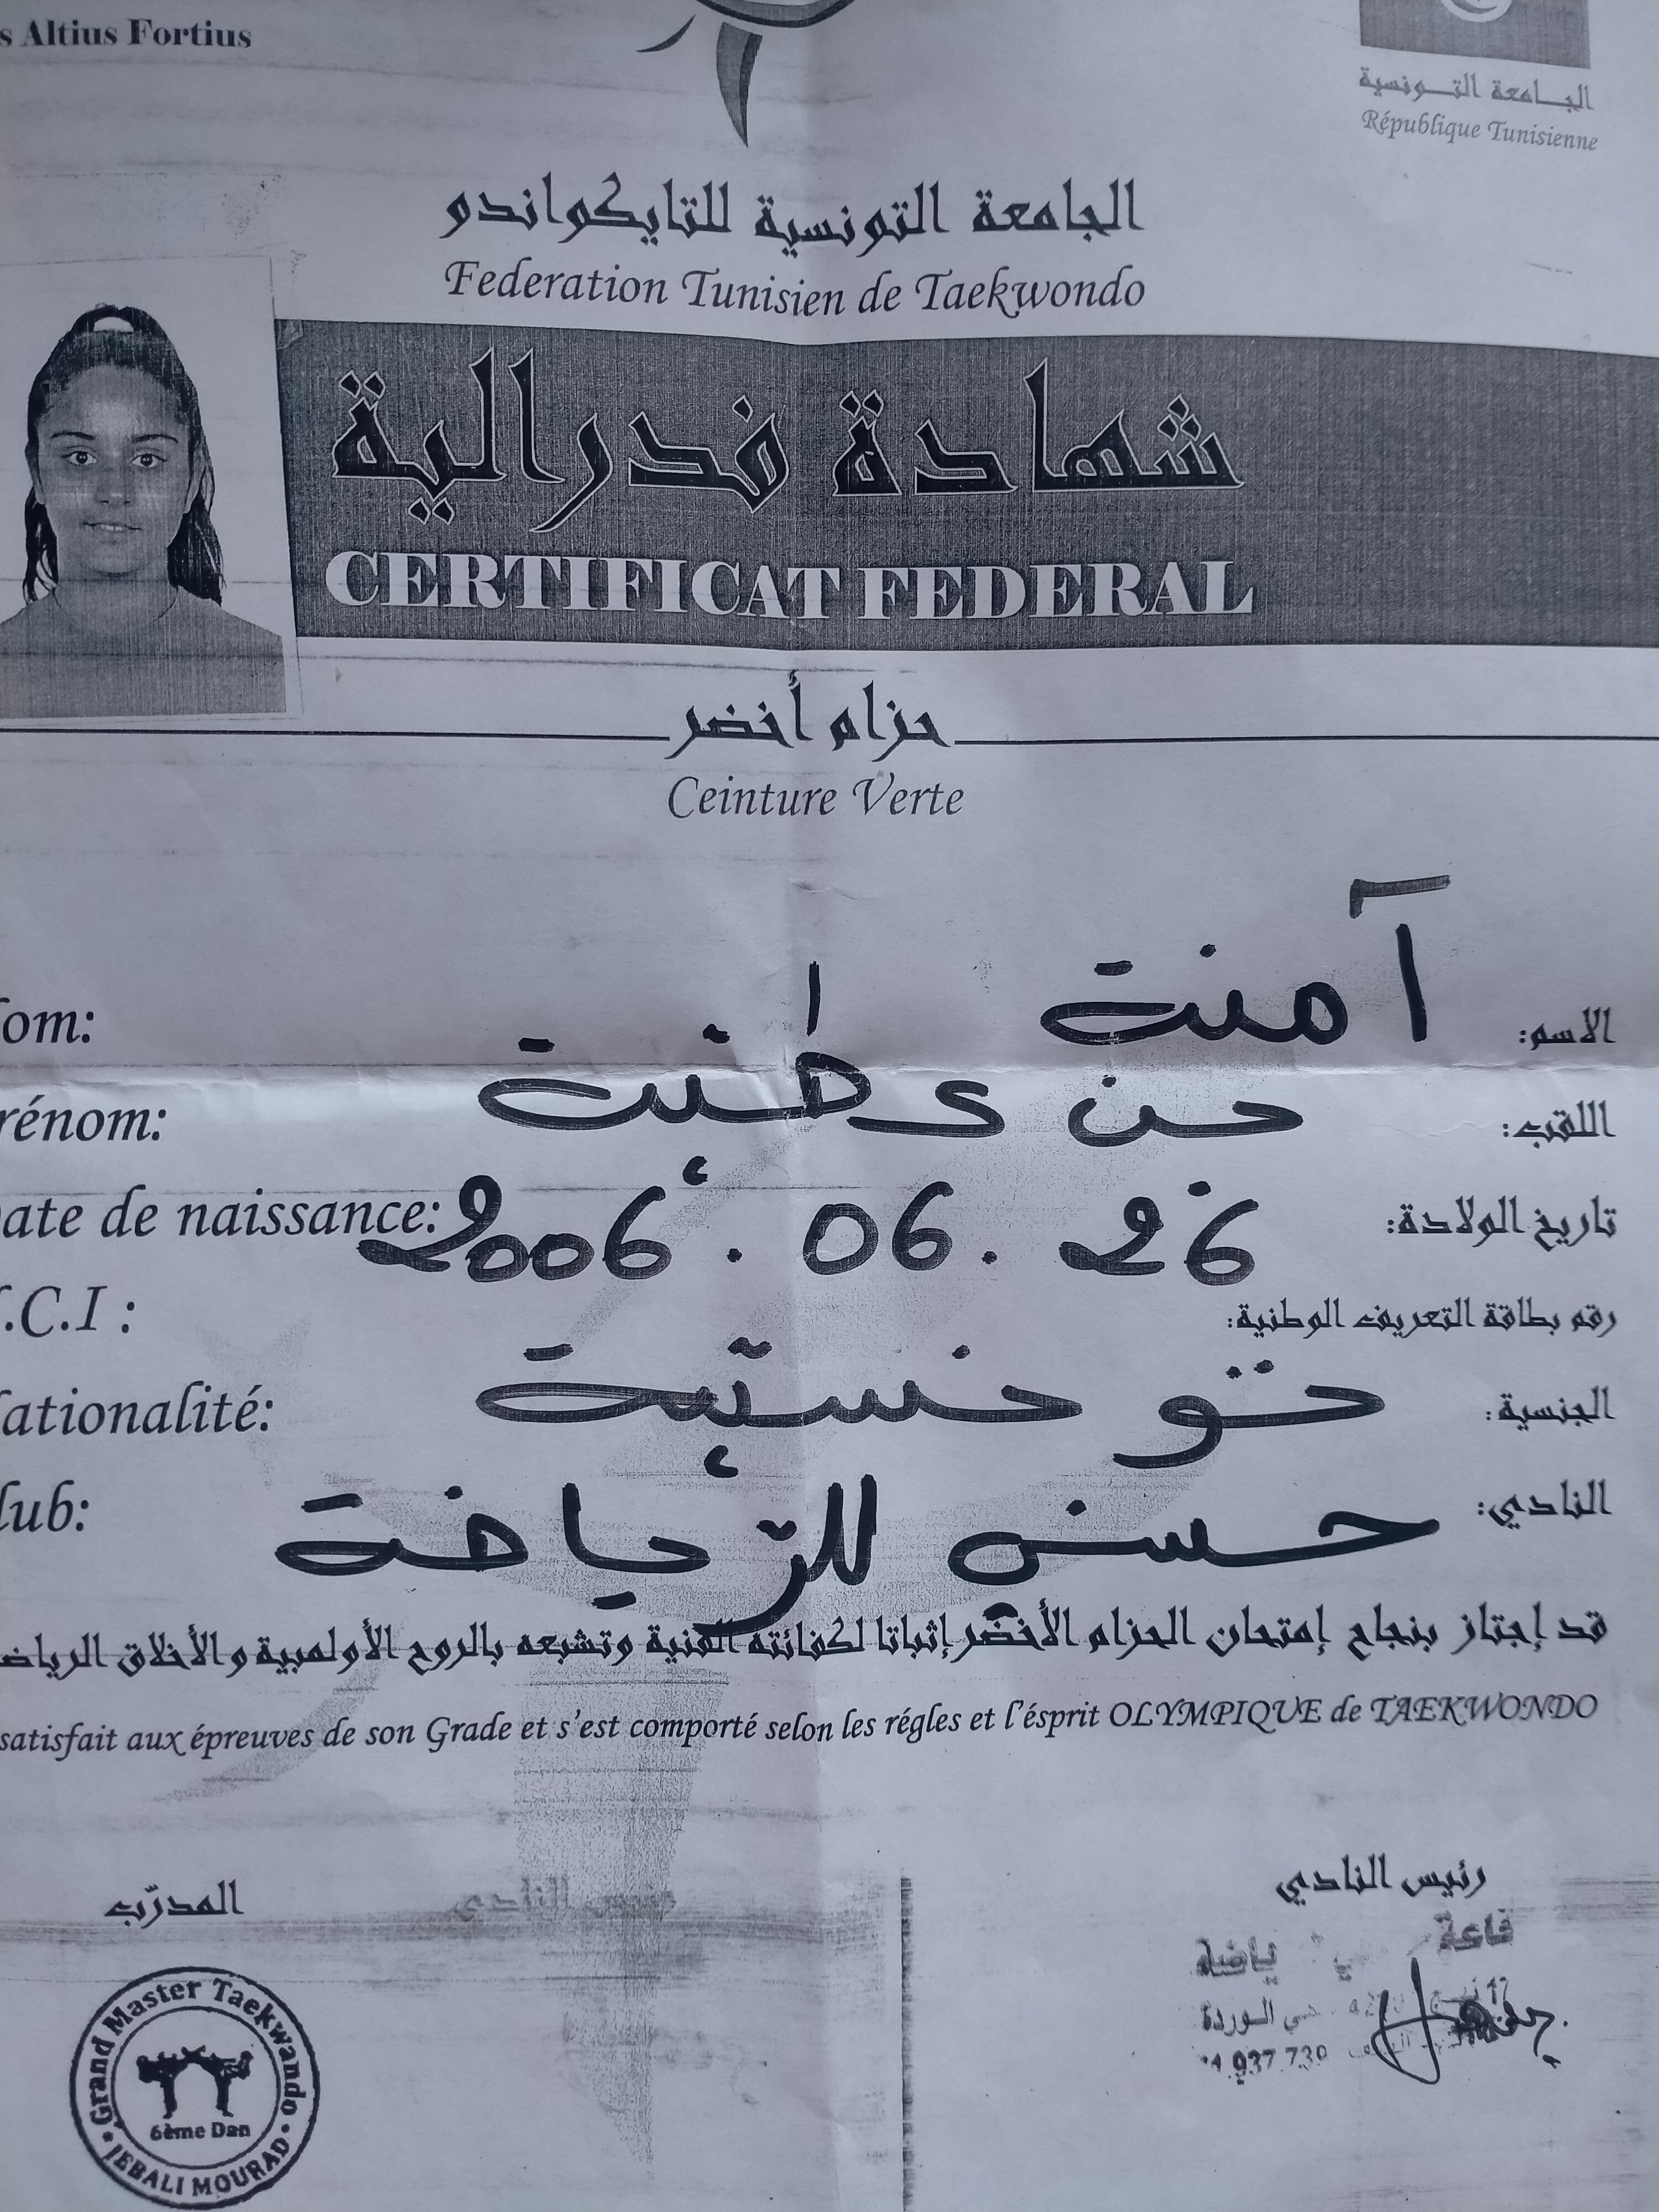 s Altius Fortius
الجامعة التونسية
République Tunisienne
الجامعة التونسية للتايكواندو
Federation Tunisien de Taekwondo
شهادة فدرالية
CERTIFICAT FEDERAL
حزام أخضر
Ceinture Verte
om: آمنة الاسم:
rénom: بن عطية اللقب:
ate de naissance: 2006 . 06 . 26 تاريخ الولادة:
.C.I : رقم بطاقة التعريف الوطنية:
ationalité: تونسية الجنسية:
lub: حسن للرياضة النادي:
قد إجتاز بنجاح إمتحان الحزام الأخضر إثباتا لكفائته الفنية وتشبعه بالروح الأولمبية والأخلاق الرياض
satisfait aux épreuves de son Grade et s'est comporté selon les régles et l'ésprit OLYMPIQUE de TAEKWONDO
المدرّب
رئيس النادي
قاعة
حي الوردة
937 730
Grand Master Taekwando
6ème Dan
JEBALI MOURAD